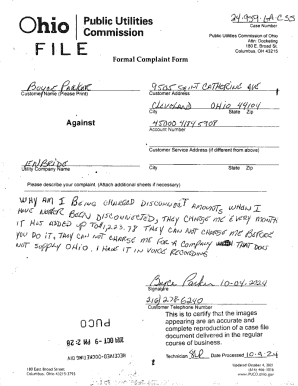 24-959-GA-CSS
Case Number
Ohio
Public Utilities
Commission
Public Utilities Commission of Ohio
Attn: Docketing
180 E. Broad St.
Columbus, OH 43215
FILE
Formal Complaint Form
Boyce Parker
9505 Saint Catherine Ave
Customer Name (Please Print)
Customer Address
Cleveland OHIO 44104
City State Zip
Against
45000 4184 5708
Account Number
Customer Service Address (if different from above)
ENBRIDGE
Utility Company Name
City State Zip
Please describe your complaint. (Attach additional sheets if necessary)
WHY AM I BEING CHARGED DISCOUNT AMOUNTS WHEN I
HAVE NEVER BEEN DISCONNECTED, THEY CHARGE ME EVERY MONTH
IT HAS ADDED UP TO 1,223.78 THEY CAN NOT CHARGE ME BEFORE
YOU DO IT, THEY CAN NOT CHARGE ME FOR A COMPANY THAT DOES
NOT SUPPLY OHIO, I HAVE IT IN VOICE RECORDING
Boyce Parker 10-04-2024
Signature
216) 278-6240
Customer Telephone Number
PUCO
2024 OCT -9 PM 2:28
This is to certify that the images
appearing are an accurate and
complete reproduction of a case file
document delivered in the regular
course of business.
Technician Date Processed 10-9-24
180 East Broad Street
Columbus, Ohio 43215-3793
Updated October 4, 2021
www.PUCO.ohio.gov